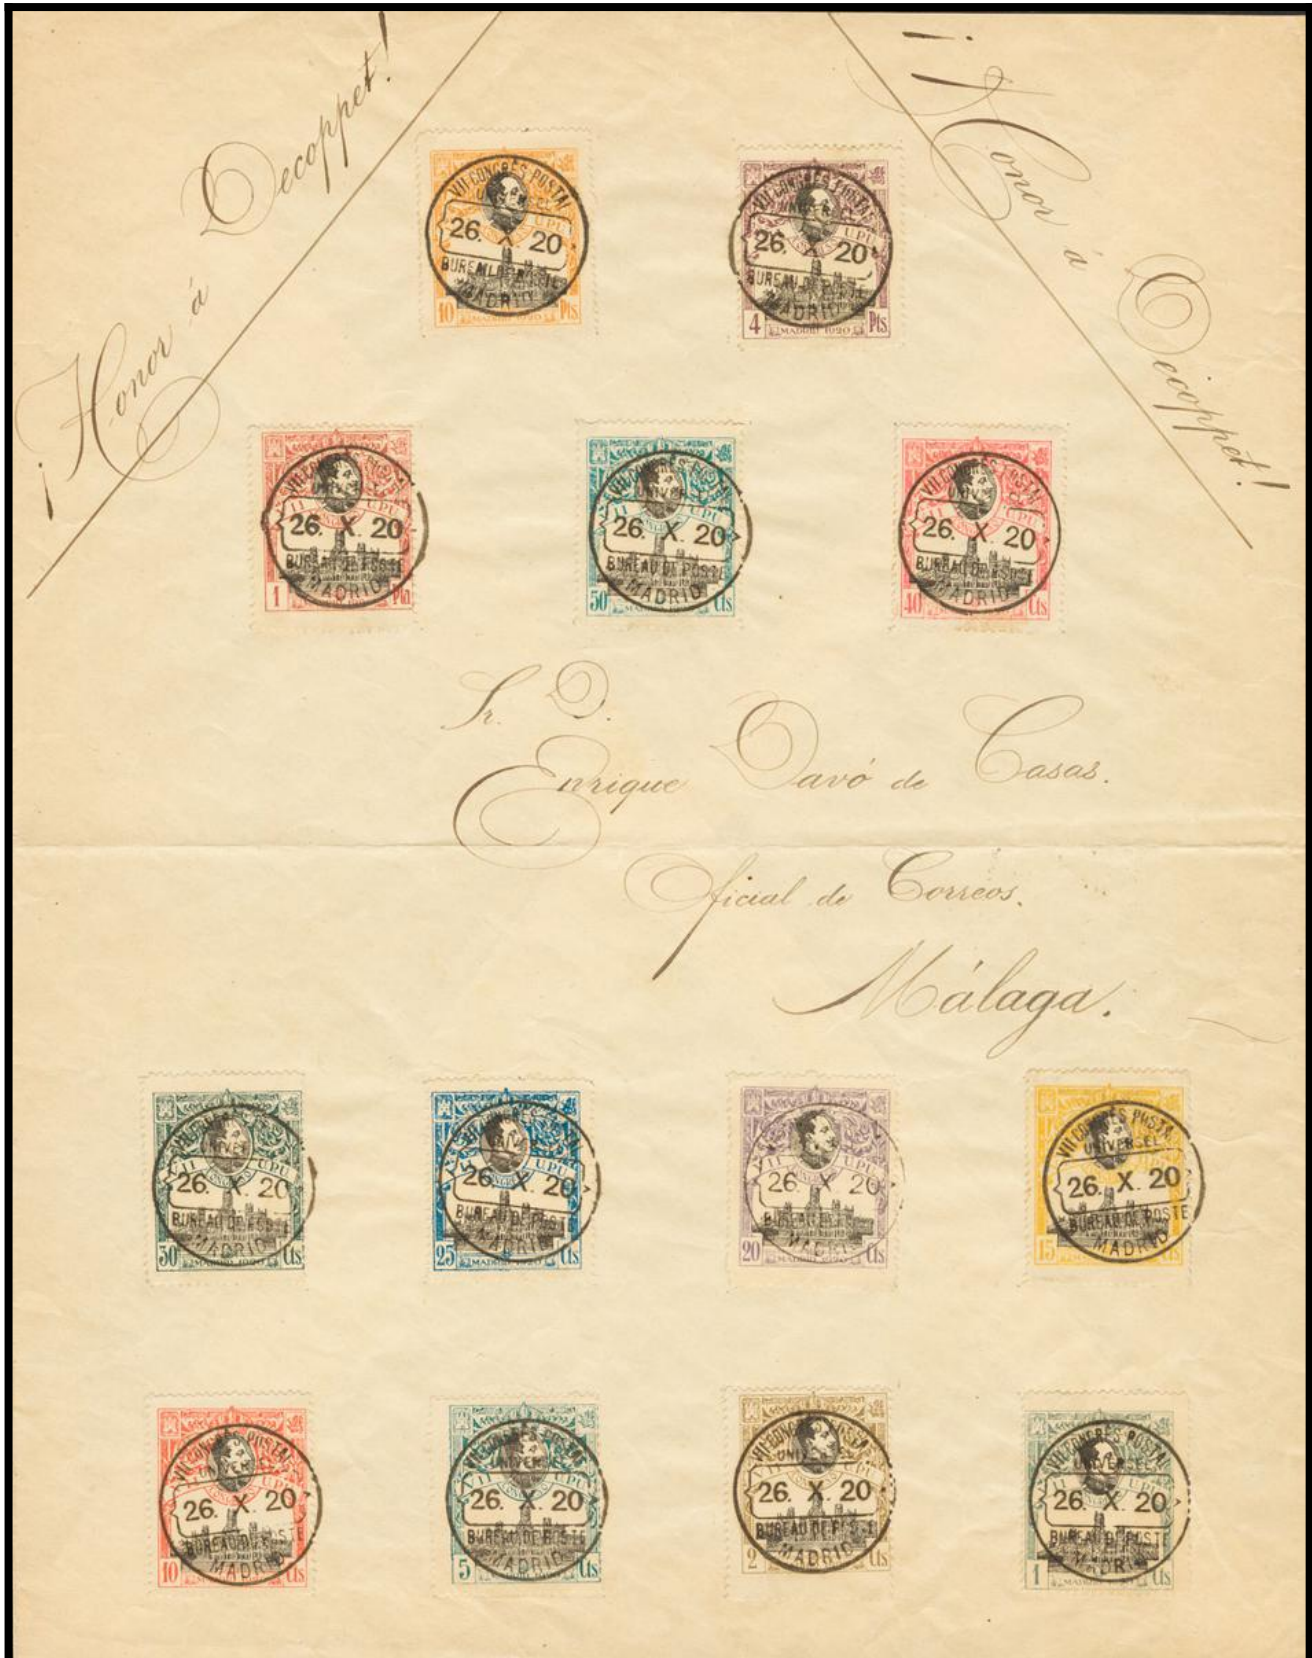 ¡Honor á Decoppet!
¡Honor á Decoppet!
VII CONGRÈS POSTAL
UNIVERSEL
26. X. 20
BUREAU DE POSTE
MADRID
10 MADRID 1920 Pts
VII CONGRÈS POSTAL
UNIVERSEL
UPU
26. X. 20
BUREAU DE POSTE
MADRID
4 MADRID 1920 Pts
VII CONGRÈS POSTAL
UPU
26. X. 20
BUREAU DE POSTE
MADRID
1 Pta
VII CONGRÈS POSTAL
UPU
26. X. 20
BUREAU DE POSTE
MADRID
50 Cts
VII CONGRÈS POSTAL
UPU
26. X. 20
BUREAU DE POSTE
MADRID
40 Cts
Sr. D.
Enrique Davó de Casas.
Oficial de Correos.
Málaga.
VII CONGRÈS POSTAL
UPU
26. X. 20
BUREAU DE POSTE
MADRID
30 MADRID 1920 Cts
VII CONGRÈS POSTAL
UPU
26. X. 20
BUREAU DE POSTE
MADRID
25 MADRID 1920 Cts
UPU
26. X. 20
BUREAU DE POSTE
MADRID
20 MADRID 1920 Cts
VII CONGRÈS POSTAL
UNIVERSEL
26. X. 20
BUREAU DE POSTE
MADRID
15 Cts
VII CONGRÈS POSTAL
UNIVERSEL
26. X. 20
BUREAU DE POSTE
MADRID
10 Cts
VII CONGRÈS POSTAL
UNIVERSEL
26. X. 20
BUREAU DE POSTE
MADRID
5 Cts
VII CONGRÈS POSTAL
UNIVERSEL
26. X. 20
BUREAU DE POSTE
MADRID
2 Cts
VII CONGRÈS POSTAL
UNIVERSEL
26. X. 20
BUREAU DE POSTE
MADRID
1 Cts